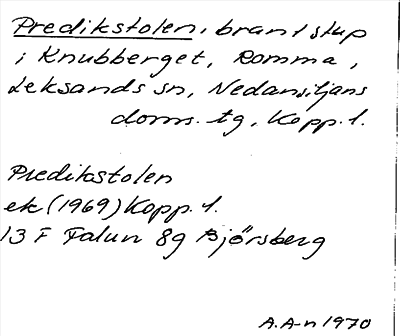 Predikstolen, brant stup
i Knubberget, Romma,
Leksands sn, Nedansiljans
doms. tg, Kopp. l.
Predikstolen
ek (1969) Kopp. l.
13 F Falun 8g Björsberg
A. A-n 1970